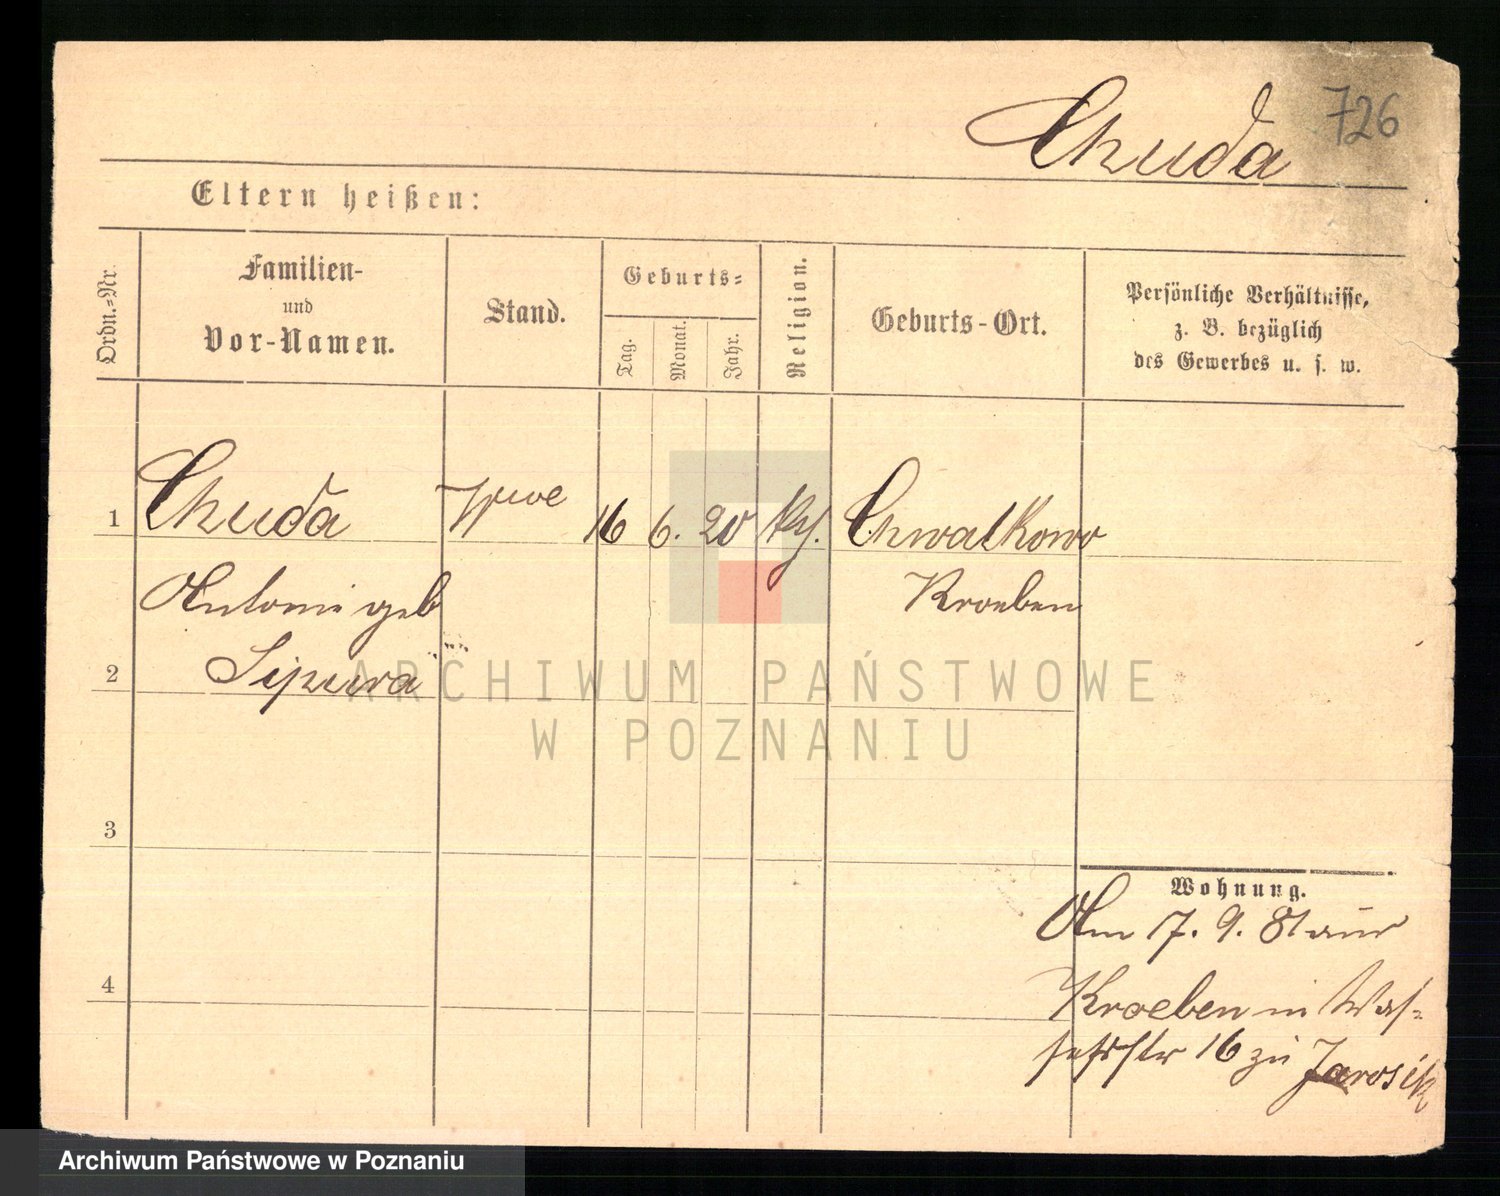 Chuda
726
Eltern heißen:
Ordn.-Nr.
Familien-
und
Vor-Namen.
Stand.
Geburts-
Tag.
Monat.
Jahr.
Religion.
Geburts-Ort.
Persönliche Verhältnisse,
z. B. bezüglich
des Gewerbes u. s. w.
1
Chuda
Wwe
16
6.
20
Chwalkowo
Antonie geb
Kroeben
2
3
4
Wohnung.
Am 17. 9. 81 aus
Kroeben in Was-
16 zu Jarosik
ARCHIWUM PAŃSTWOWE
W POZNANIU
Archiwum Państwowe w Poznaniu